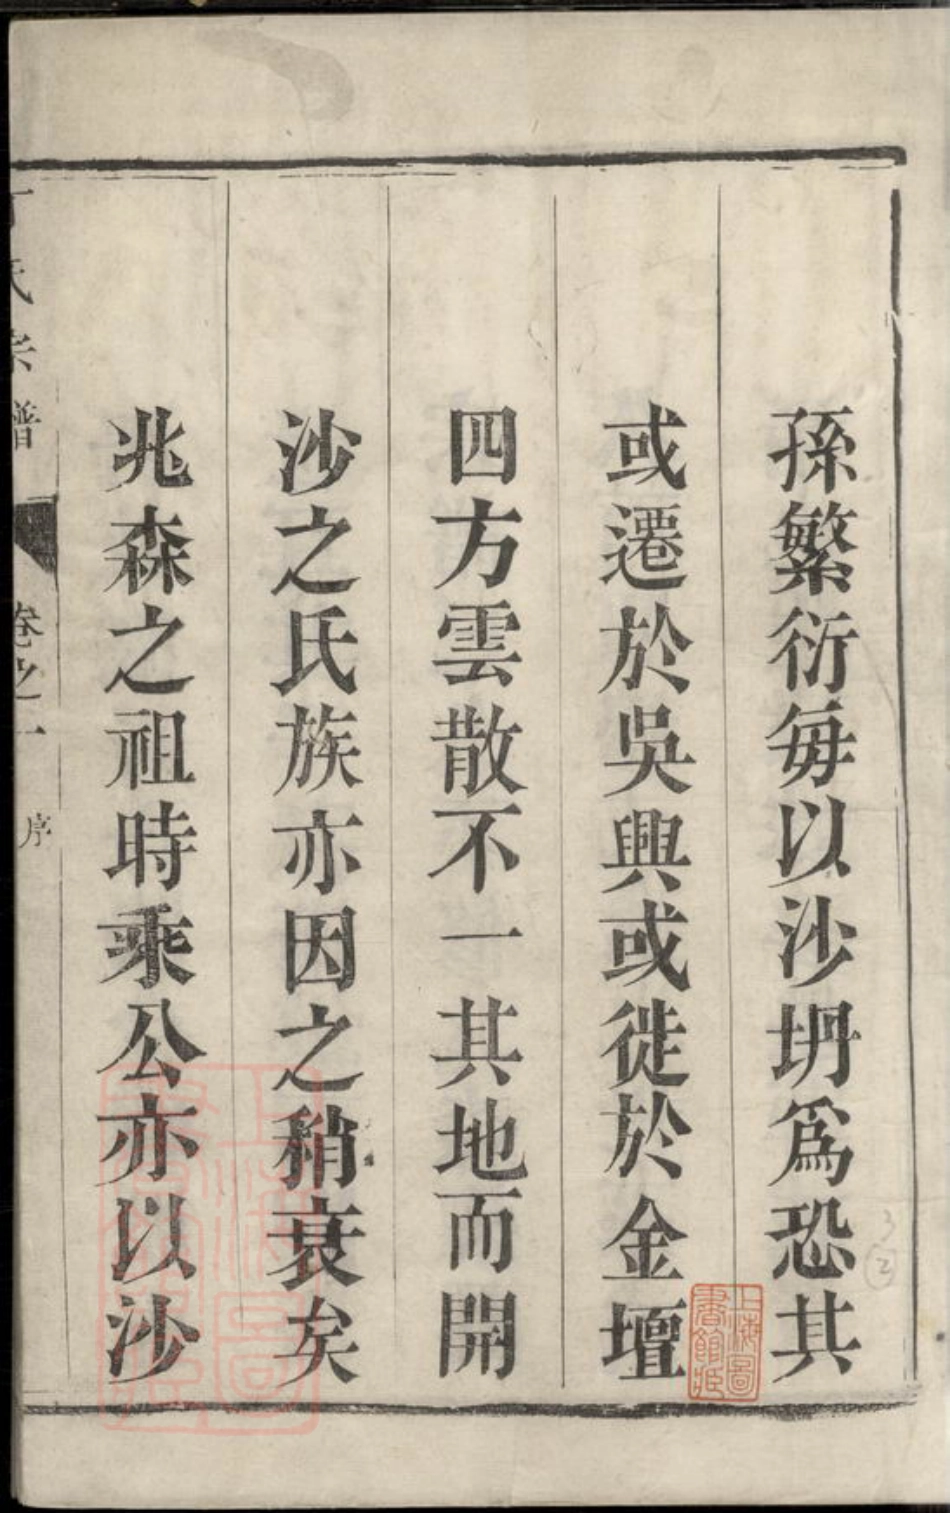 孫繁衍每以沙坍爲恐其
或遷於吳興或徙於金壇
四方雲散不一其地而開
沙之氏族亦因之稍衰矣
兆森之祖時乘公亦以沙
氏宗譜
卷之一
序
上海圖書館藏